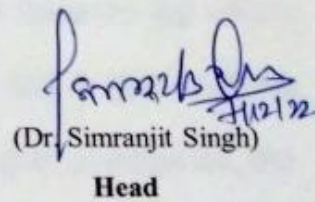 7/12/22
(Dr. Simranjit Singh)
Head